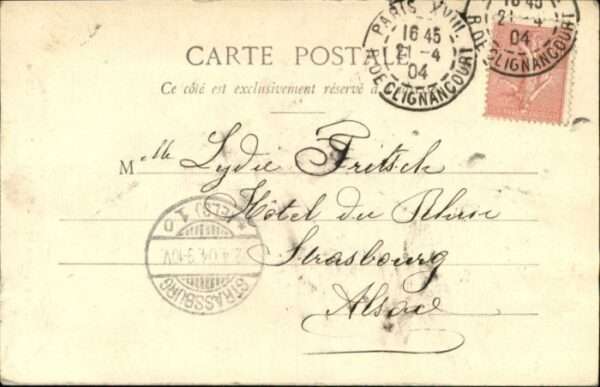 PARIS XVIII
16 45
21 - 4
04
R. DE CLIGNANCOURT
16 45
21 - 4
04
R. DE CLIGNANCOURT
CARTE POSTALE
Ce côté est exclusivement réservé à
Melle Lydie Fritsch
Hôtel du Rhin
Strasbourg
Alsace
STRASSBURG
(ELS) 1 o
2.4.04.9-10V.